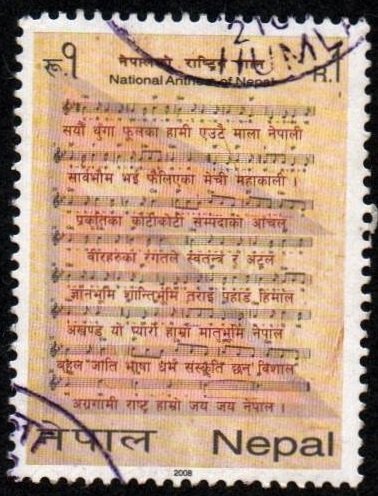 रू.१
R.1
नेपालको राष्ट्रिय गान
National Anthem of Nepal
सयौं थुंगा फूलका हामी एउटै माला नेपाली
सार्वभौम भई फैलिएका मेची महाकाली ।
प्रकृतिका कोटीकोटी सम्पदाको आंचल
वीरहरुका रगतले स्वतन्त्र र अटल
ज्ञानभूमि शान्तिभूमि तराई पहाड हिमाल
अखण्ड यो प्यारो हाम्रो मातृभूमि नेपाल
बहुल जाति भाषा धर्म संस्कृति छन् विशाल
अग्रगामी राष्ट्र हाम्रो जय जय नेपाल ।
नेपाल Nepal
2008